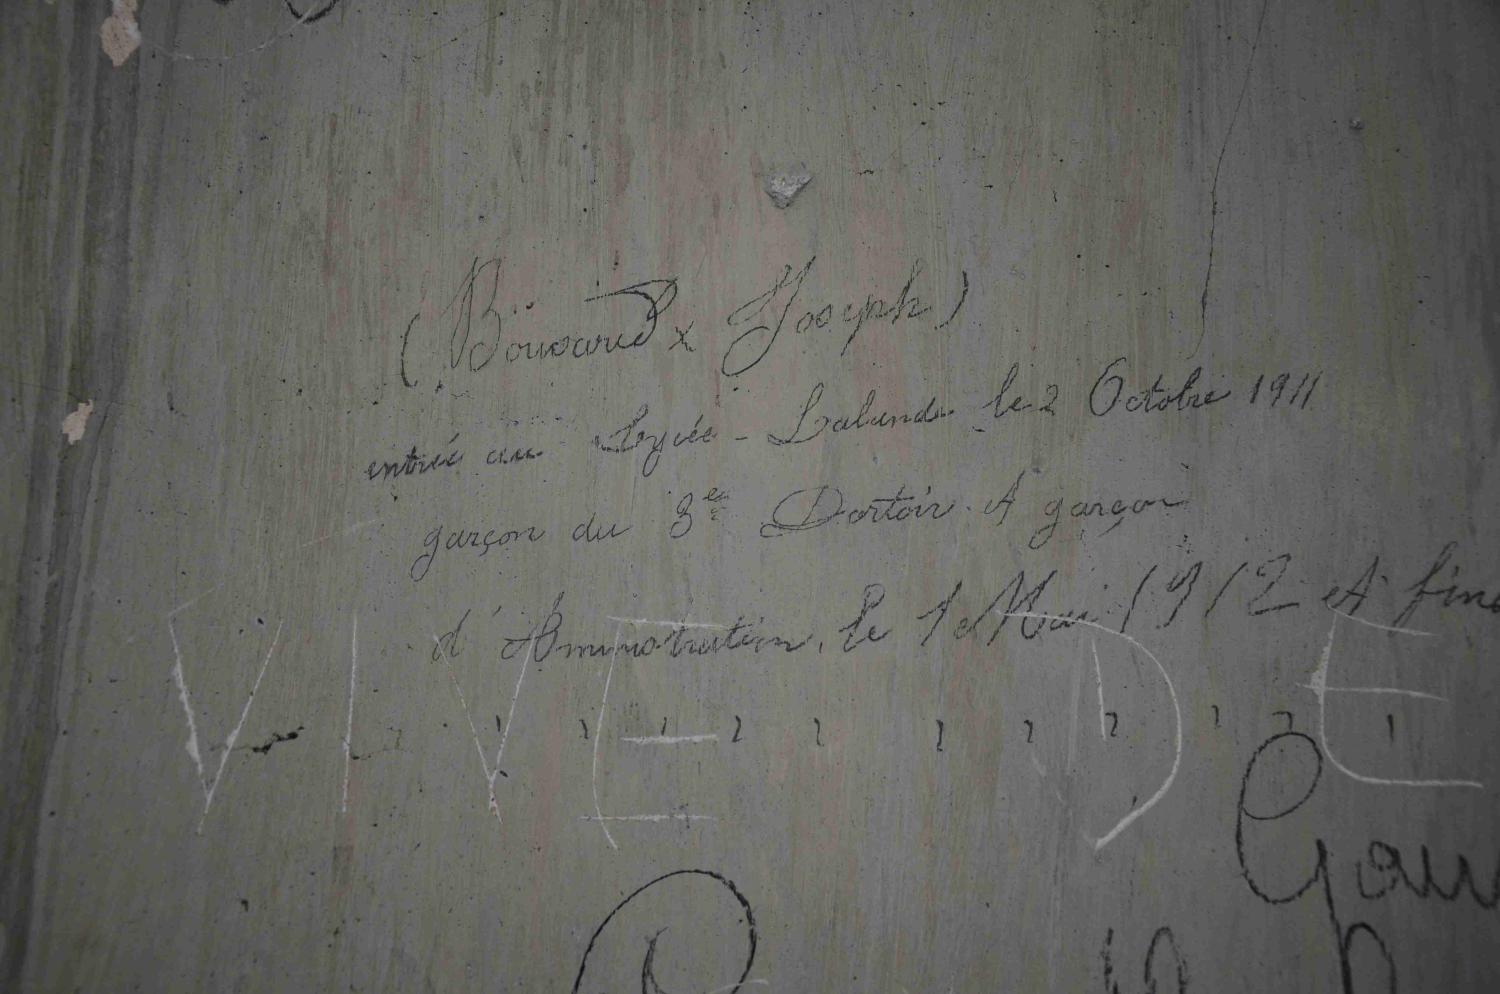 (Bouvard x Joseph)
entrée au Lycée - Lalande le 2 Octobre 1911
garçon du 3e Dortoir. et garçon
d'Aministration, le 1e Mai 1912 et
VIVE DE